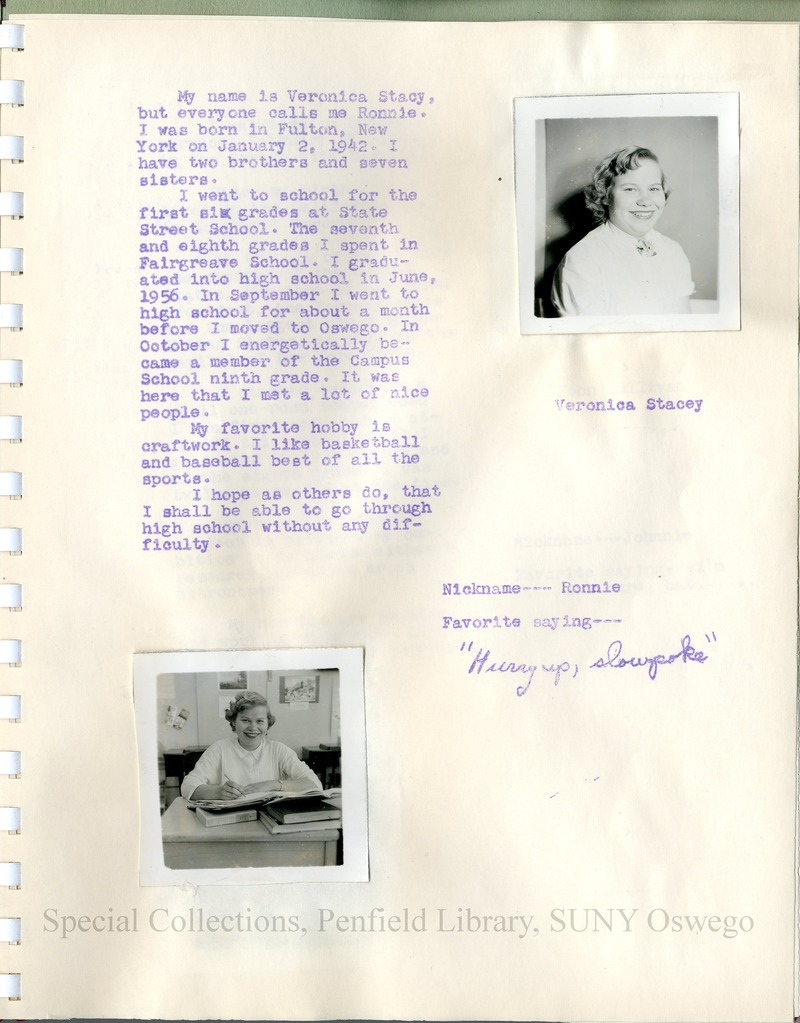 My name is Veronica Stacy,
but everyone calls me Ronnie.
I was born in Fulton, New
York on January 2, 1942. I
have two brothers and seven
sisters.
I went to school for the
first six grades at State
Street School. The seventh
and eighth grades I spent in
Fairgreave School. I gradu-
ated into high school in June,
1956. In September I went to
high school for about a month
before I moved to Oswego. In
October I energetically be-
came a member of the Campus
School ninth grade. It was
here that I met a lot of nice
people.
My favorite hobby is
craftwork. I like basketball
and baseball best of all the
sports.
I hope as others do, that
I shall be able to go through
high school without any dif-
ficulty.
Veronica Stacey
Nickname--- Ronnie
Favorite saying---
"Hurry up, slowpoke"
Special Collections, Penfield Library, SUNY Oswego